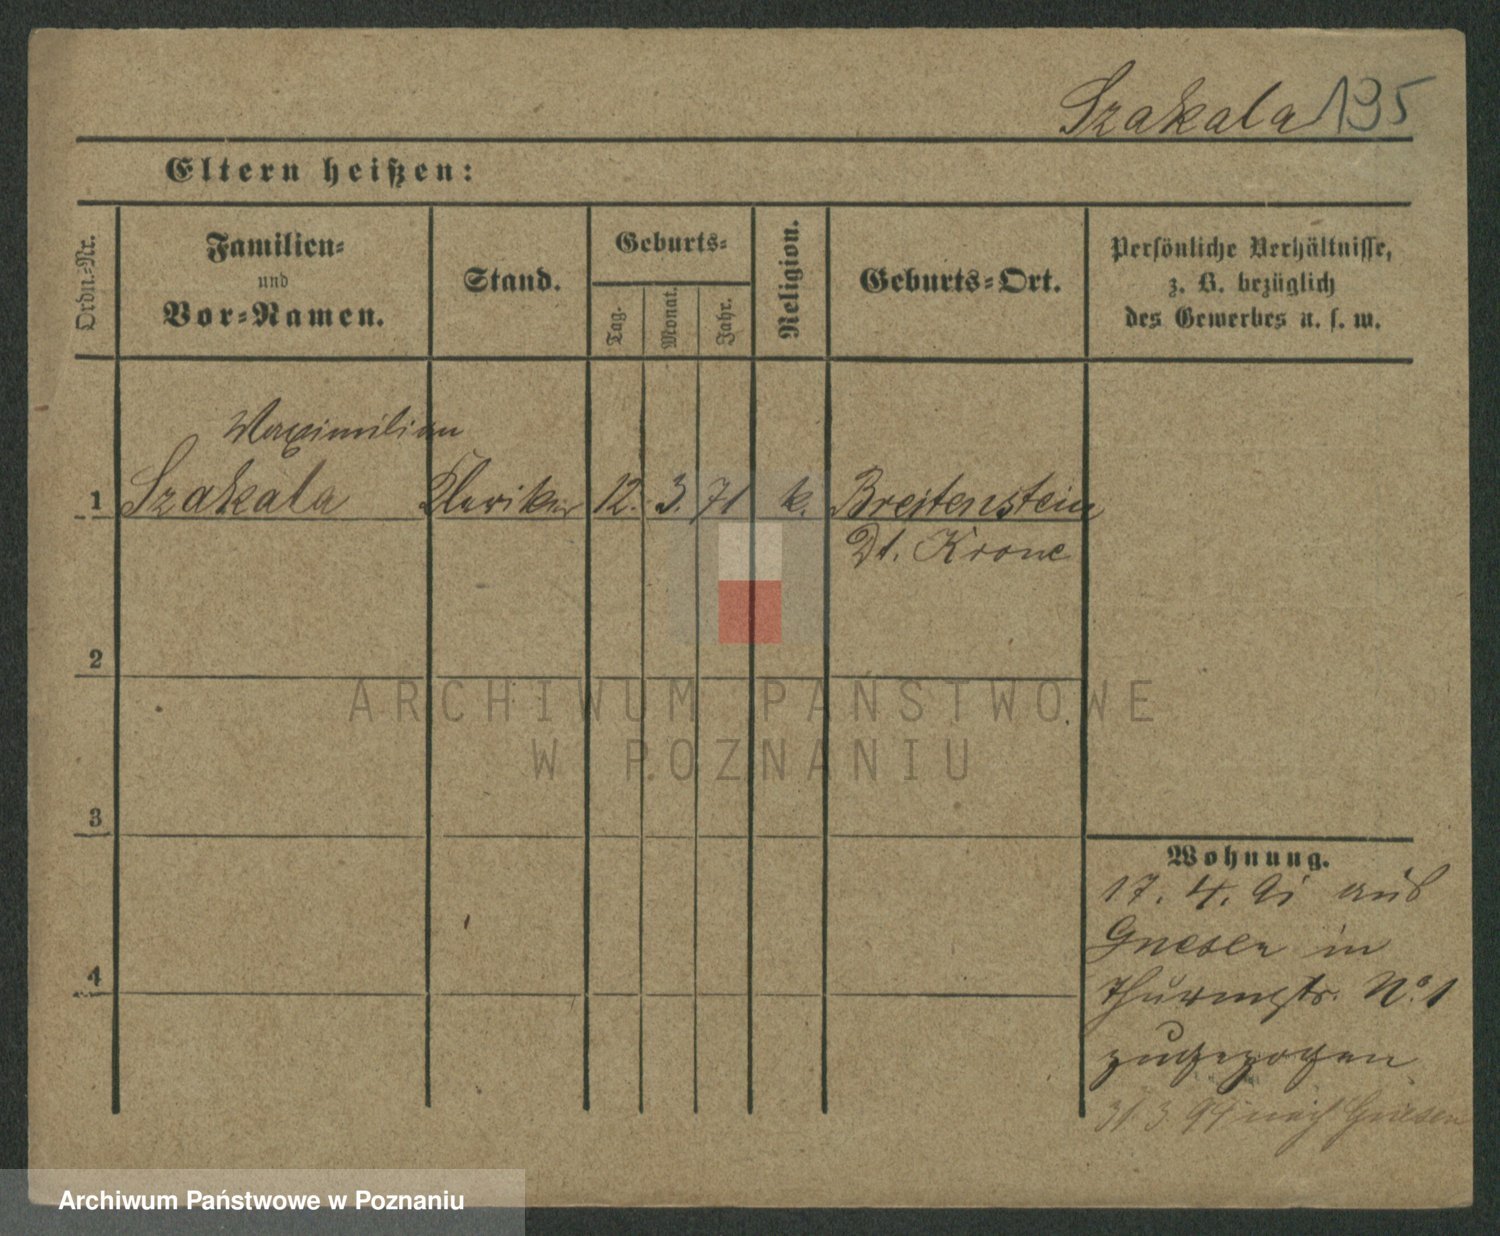 Szakala 195
Eltern heißen:
Ordn.-Nr.
Familien-
und
Vor-Namen.
Stand.
Geburts-
Tag.
Monat.
Jahr.
Religion.
Geburts-Ort.
Persönliche Verhältnisse,
z. B. bezüglich
des Gewerbes u. s. w.
Maximilian
1 Szakala Kleriker 12. 3. 71 k. Breitenstein
Dt. Krone
2
3
4
Wohnung.
17. 4. 91 aus
Gnesen in
Thurmstr. No. 1
zugezogen
31. 3. 94 nach Gnesen
ARCHIWUM PAŃSTWOWE
W POZNANIU
Archiwum Państwowe w Poznaniu